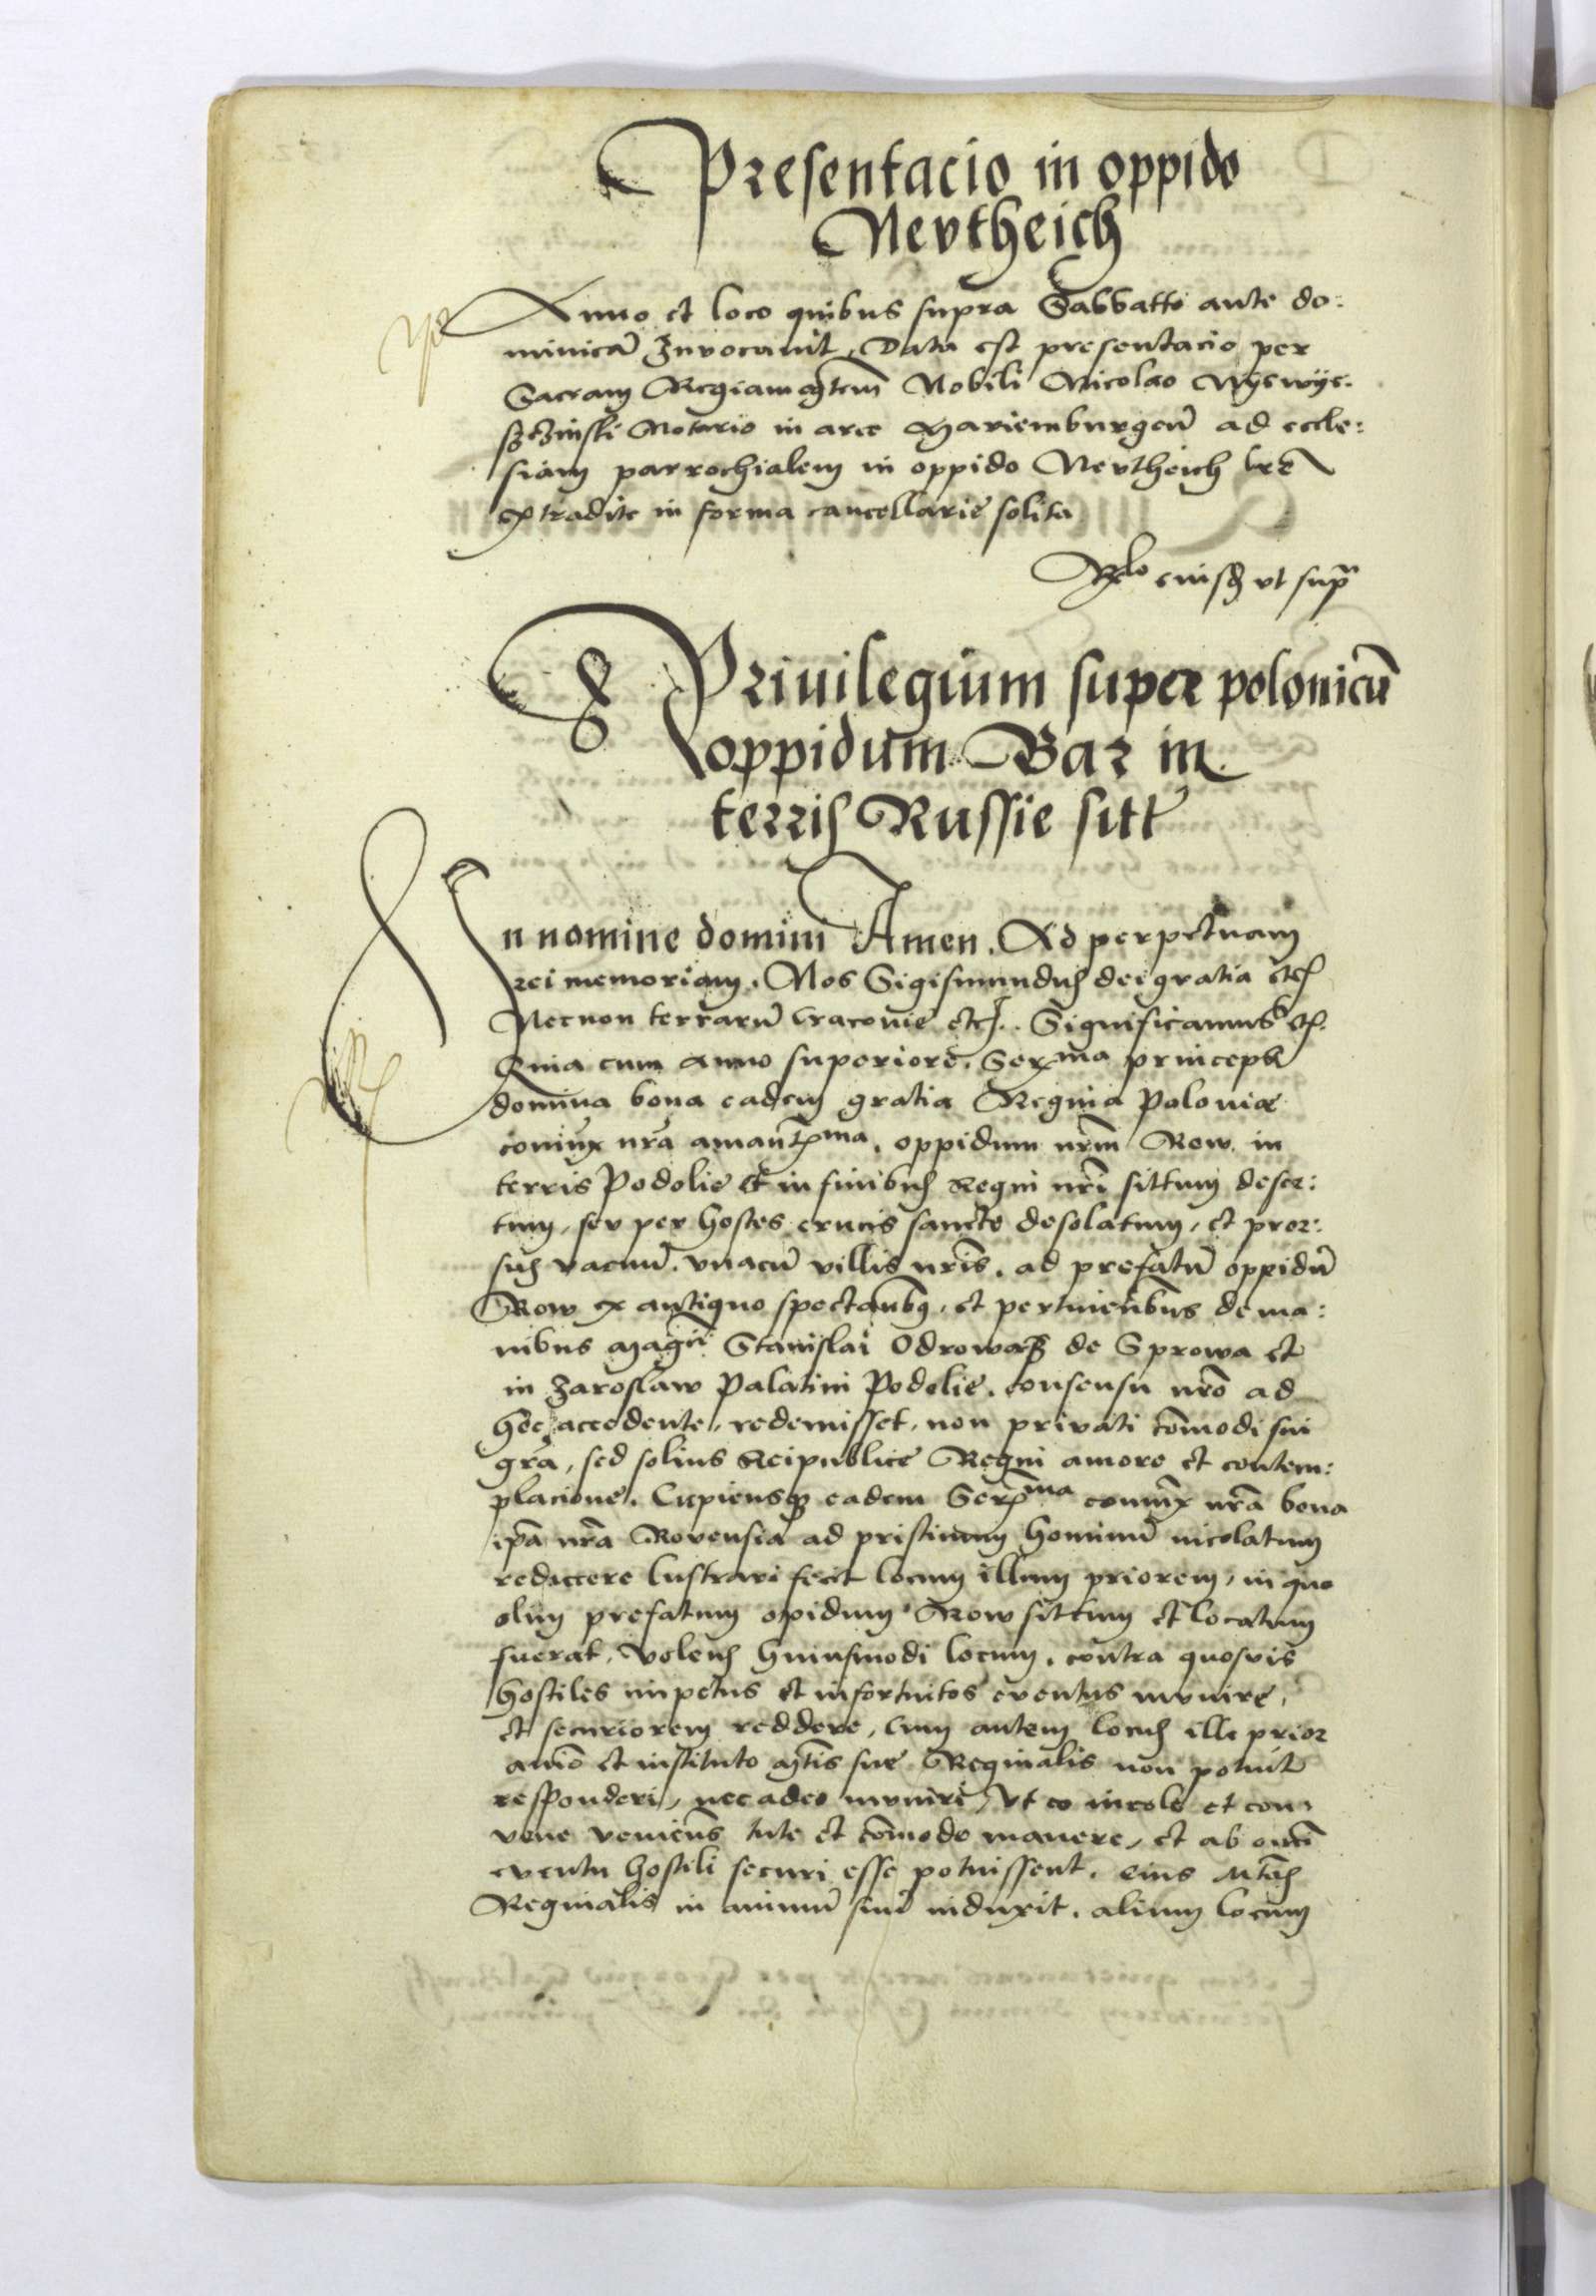 Presentacio in oppido
Nevtheich
Anno et loco quibus supra Sabbatto ante do:
minicā Invocavit, Data est presentacio per
Sacram Regiam mtem Nobili Nicolao
Notario in arce Mariemburgen̄ ad eccle:
siam parrochialem in oppido Nevtheich lrē
extradite in forma cancellarie solita
Rlo eiusd ut supra
Privilegium super polonicū
oppidum Bar in
terris Russie sitt
In nomine domini Amen. Ad perpetuam
rei memoriam. Nos Sigismundus dei gratia etc
Necnon terrarū Cracovie etc. Significamus etc.
Quia cum anno superiore, Serma princeps
domina bona eadem gratia Regina Polonie
coniux nrā amantxma, oppidum nrm̄ Row in
terris Podolie et in finibus Regni nrī sittum deser:
tum, sev per hostes crucis sancte desolatum, et pror:
sus vacuū, vnacū villis nrīs, ad prefatū oppidū
Row ex antiquo spectanbus, et pertinenbus de ma:
nibus Magci Stanislai Odrowasz de Sprowa et
in Jaroslaw Palatini Podolie, consensu nrō ad
hec accedente, redemisset, non privati cōmodi sui
grā, sed solius Reipublice Regni amore et contem:
placione. Cupiensque eadem Serxma coniux nrā bona
ipā nrā Rovensia ad pristinum hominū incolatum
reducere lustrari fecit locum illum priorem, in quo
olim prefatum opidum Row sittum et locatum
fuerat, volens huiusmodi locum, contra quosvis
hostiles impetus et infortuitos eventus mvnire,
et securiorem reddere, Cum autem locus ille prior
animo et instituto mtis sue Reginalis non potuit
responderi, nec adeo mvniri, Vt eo incole et con:
vene veniens tute et cōmode manere, et ab omni
eventu hostili securi esse potuissent, eius Mtas
Reginalis in animū suū induxit, alium locum